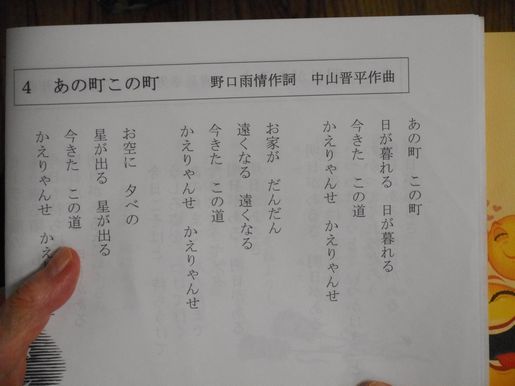 4 あの町この町 野口雨情作詞 中山晋平作曲
あの町 この町
日が暮れる 日が暮れる
今きた この道
かえりゃんせ かえりゃんせ
お家が だんだん
遠くなる 遠くなる
今きた この道
かえりゃんせ かえりゃんせ
お空に 夕べの
星が出る 星が出る
今きた この道
かえりゃんせ かえ